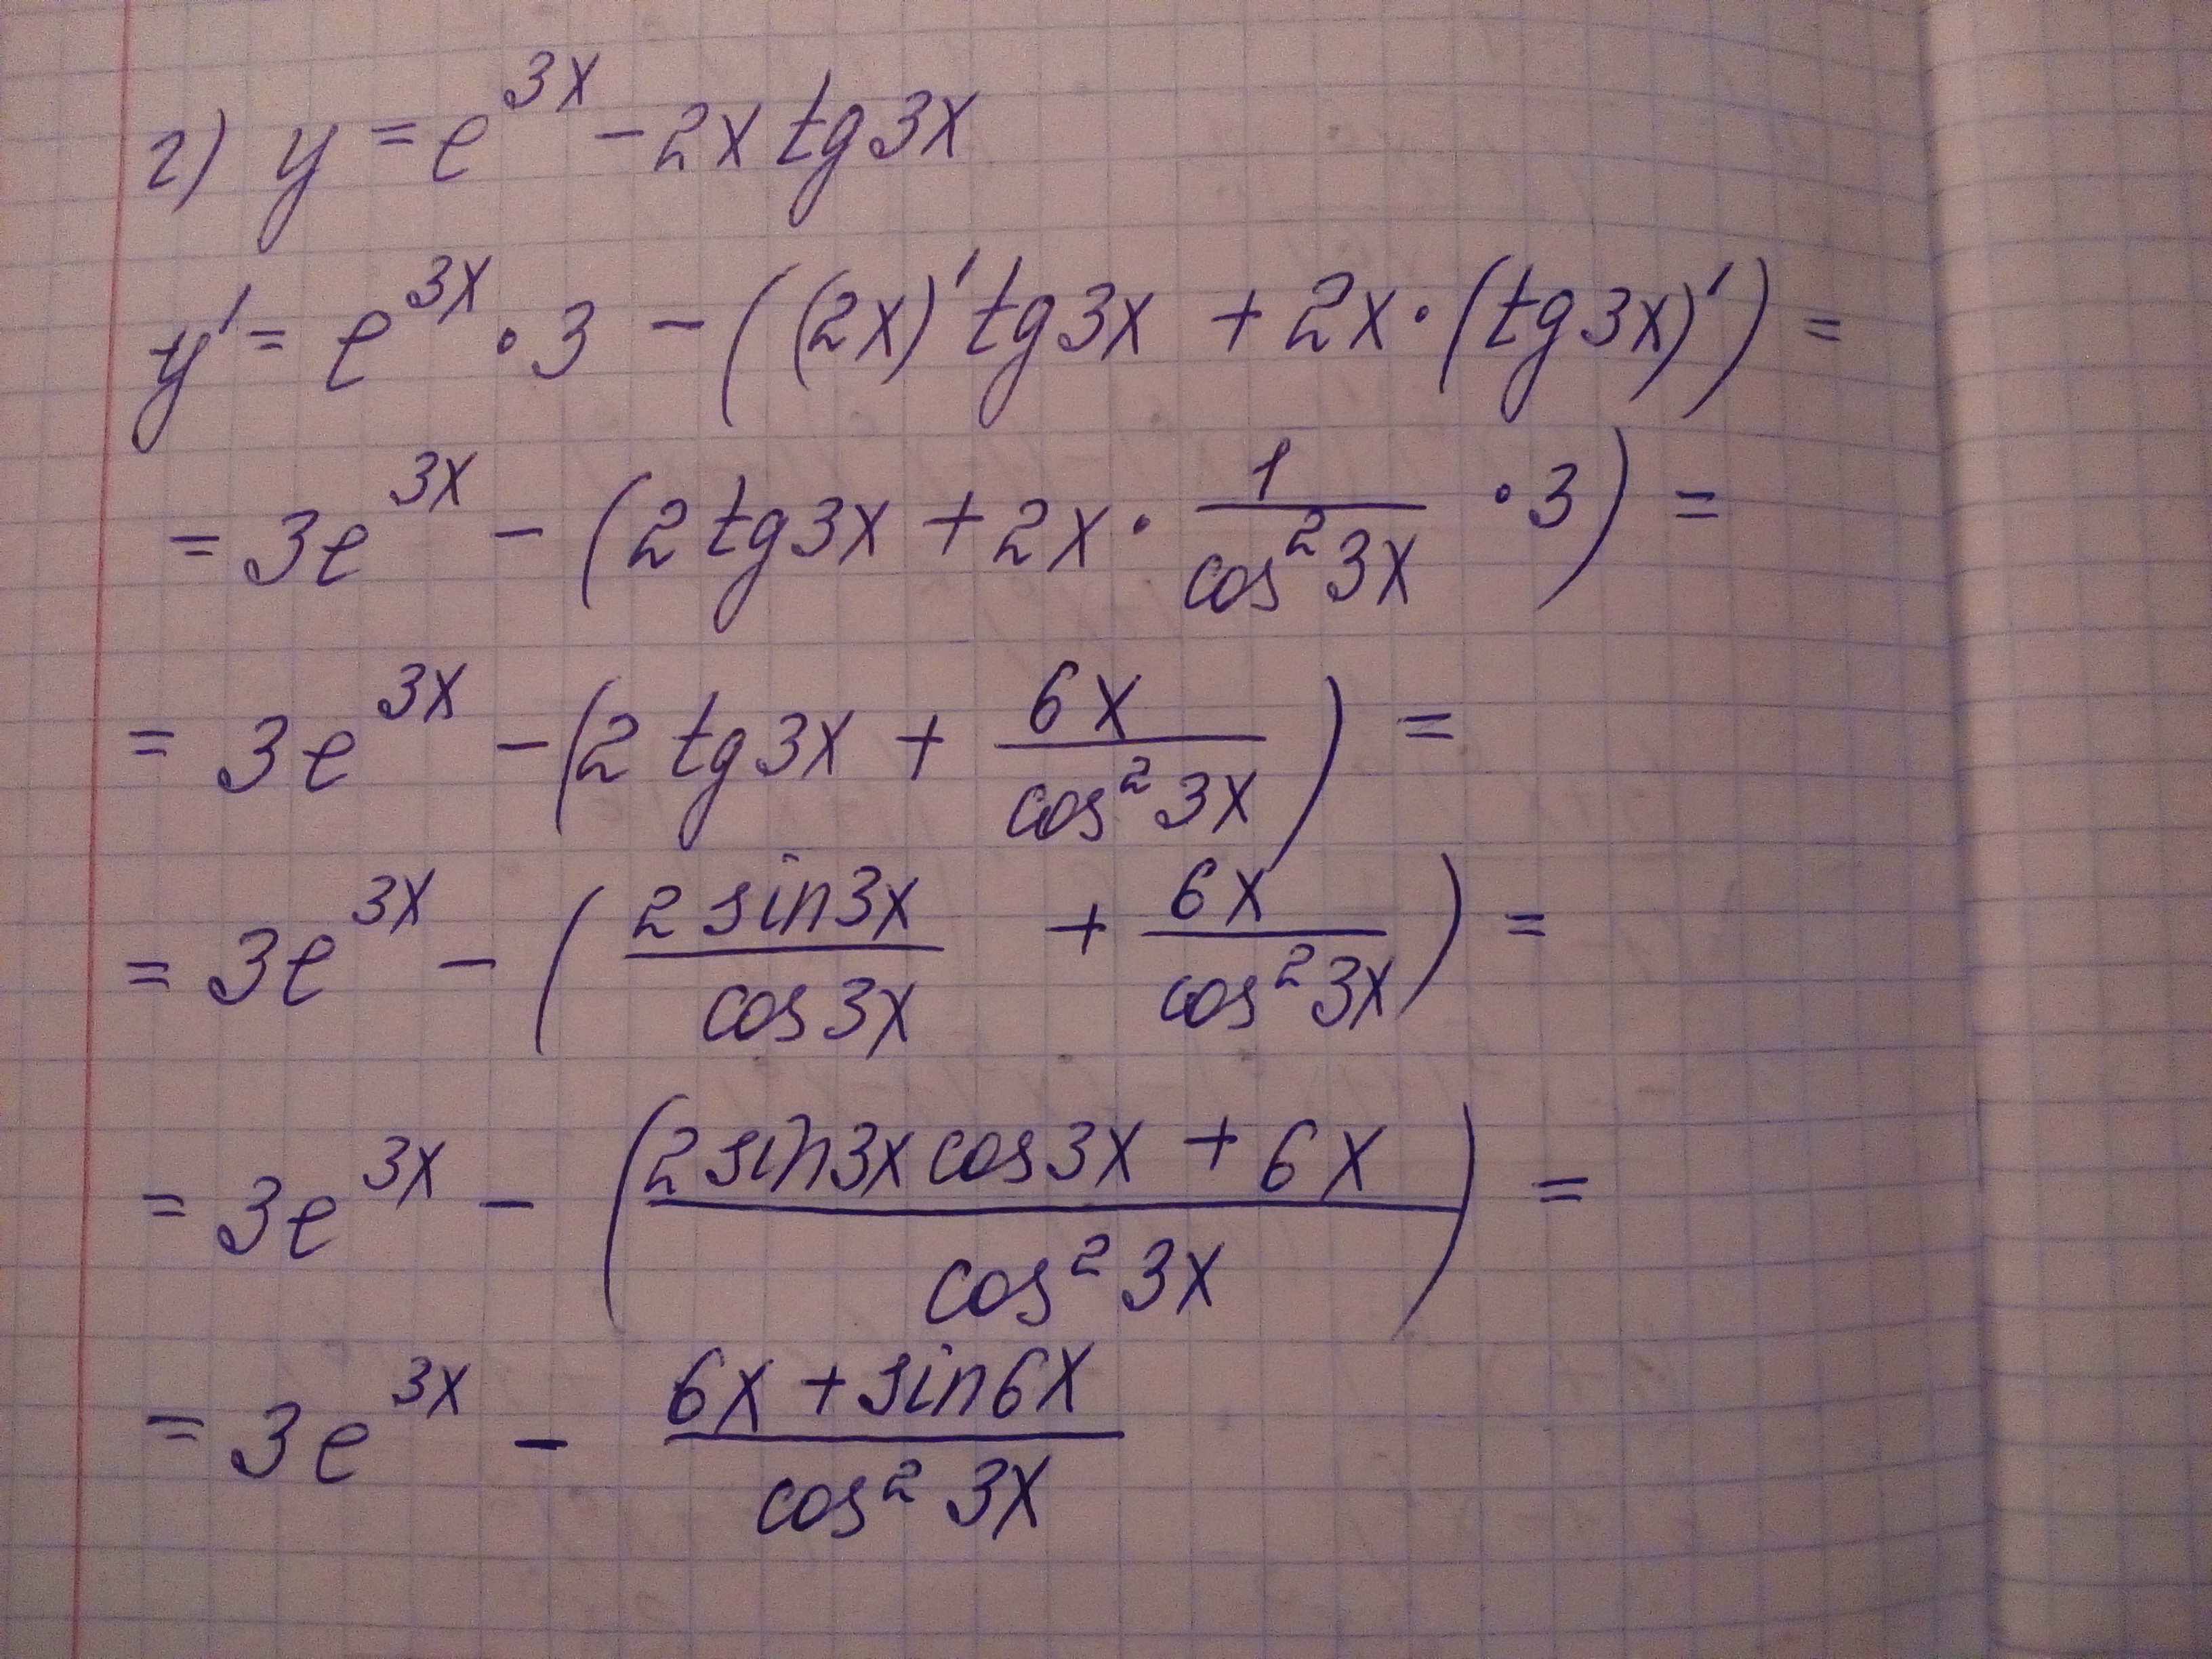 г) y = e^{3x} - 2x tg 3x
y' = e^{3x} · 3 - ((2x)' tg 3x + 2x · (tg 3x)') =
= 3e^{3x} - (2 tg 3x + 2x · \frac{1}{cos^2 3x} · 3) =
= 3e^{3x} - (2 tg 3x + \frac{6x}{cos^2 3x}) =
= 3e^{3x} - (\frac{2 sin 3x}{cos 3x} + \frac{6x}{cos^2 3x}) =
= 3e^{3x} - (\frac{2 sin 3x cos 3x + 6x}{cos^2 3x}) =
= 3e^{3x} - \frac{6x + sin 6x}{cos^2 3x}